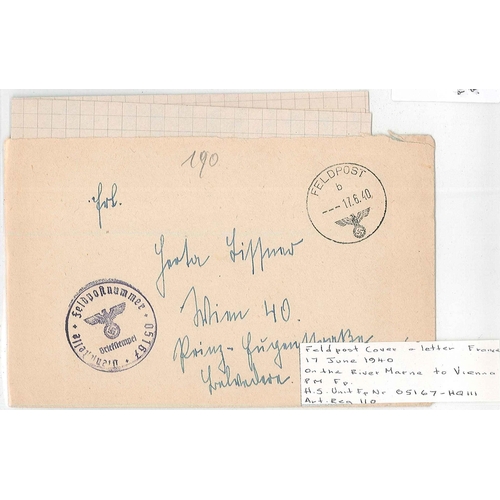 190
FELDPOST
b
--- 17.6.40.
Frl.
Herta Tissner
Wien 40.
Prinz-Eugenstraße
Belvedere.
Feldpostnummer * 05167 * Dienststelle *
Briefstempel
Feldpost Cover + letter France
17 June 1940
On the River Marne to Vienna
PM Fp.
H.S. Unit Fp Nr 05167 - HQ III
Art. Reg 110